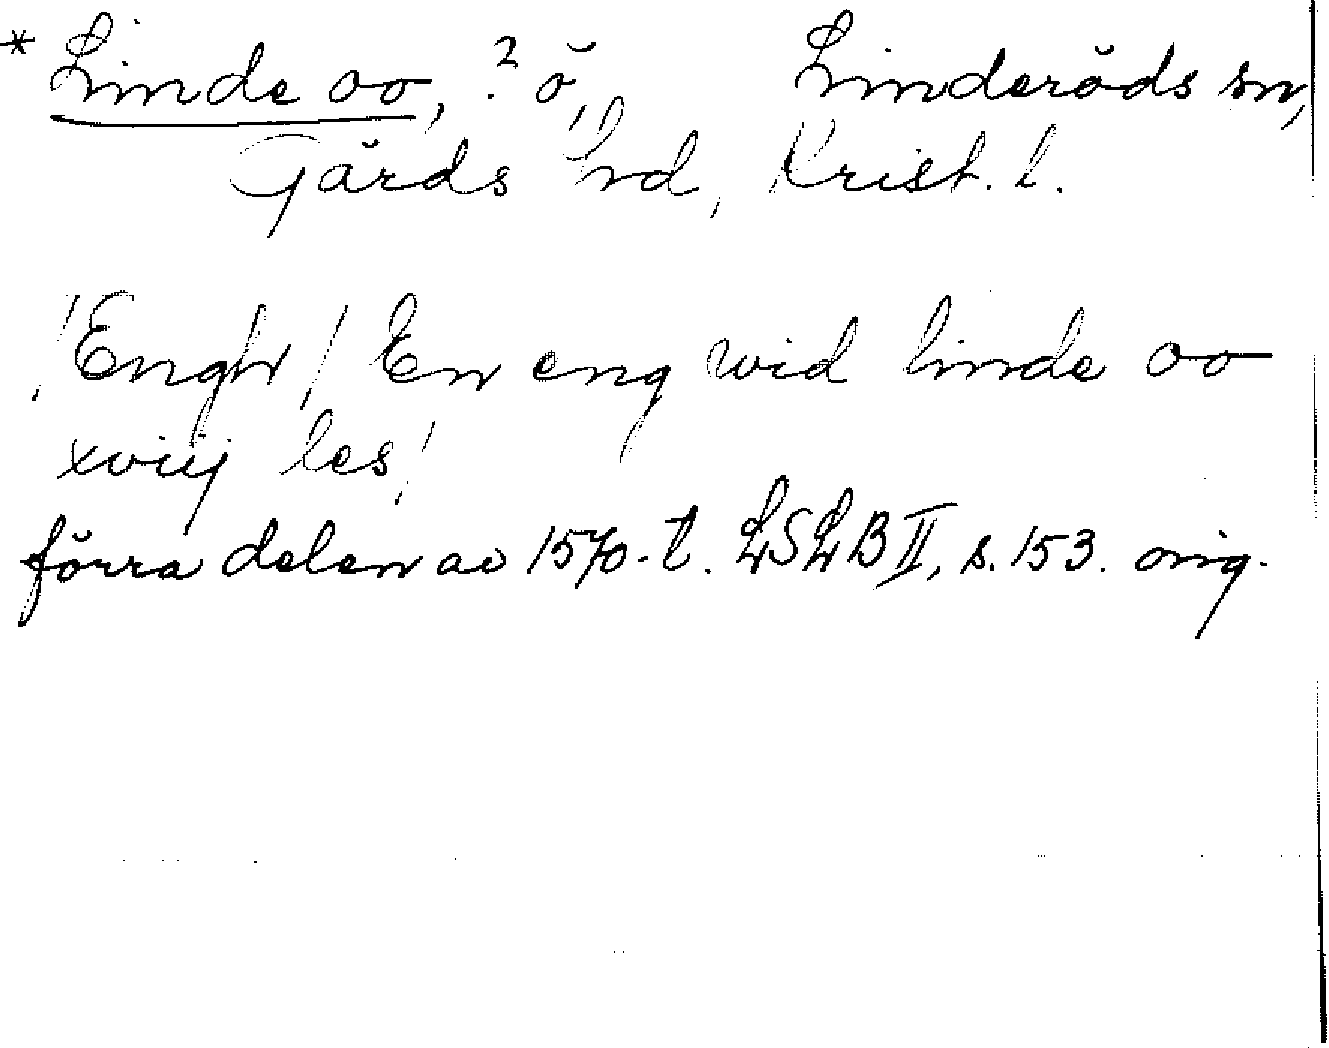 * Linde oo, ? å, Linderöds sn,
Gärds hd, Krist. l.
/Engh/ En eng wid linde oo
xviij les/
förra delen av 1570-t. LSLB II, s. 153. orig.